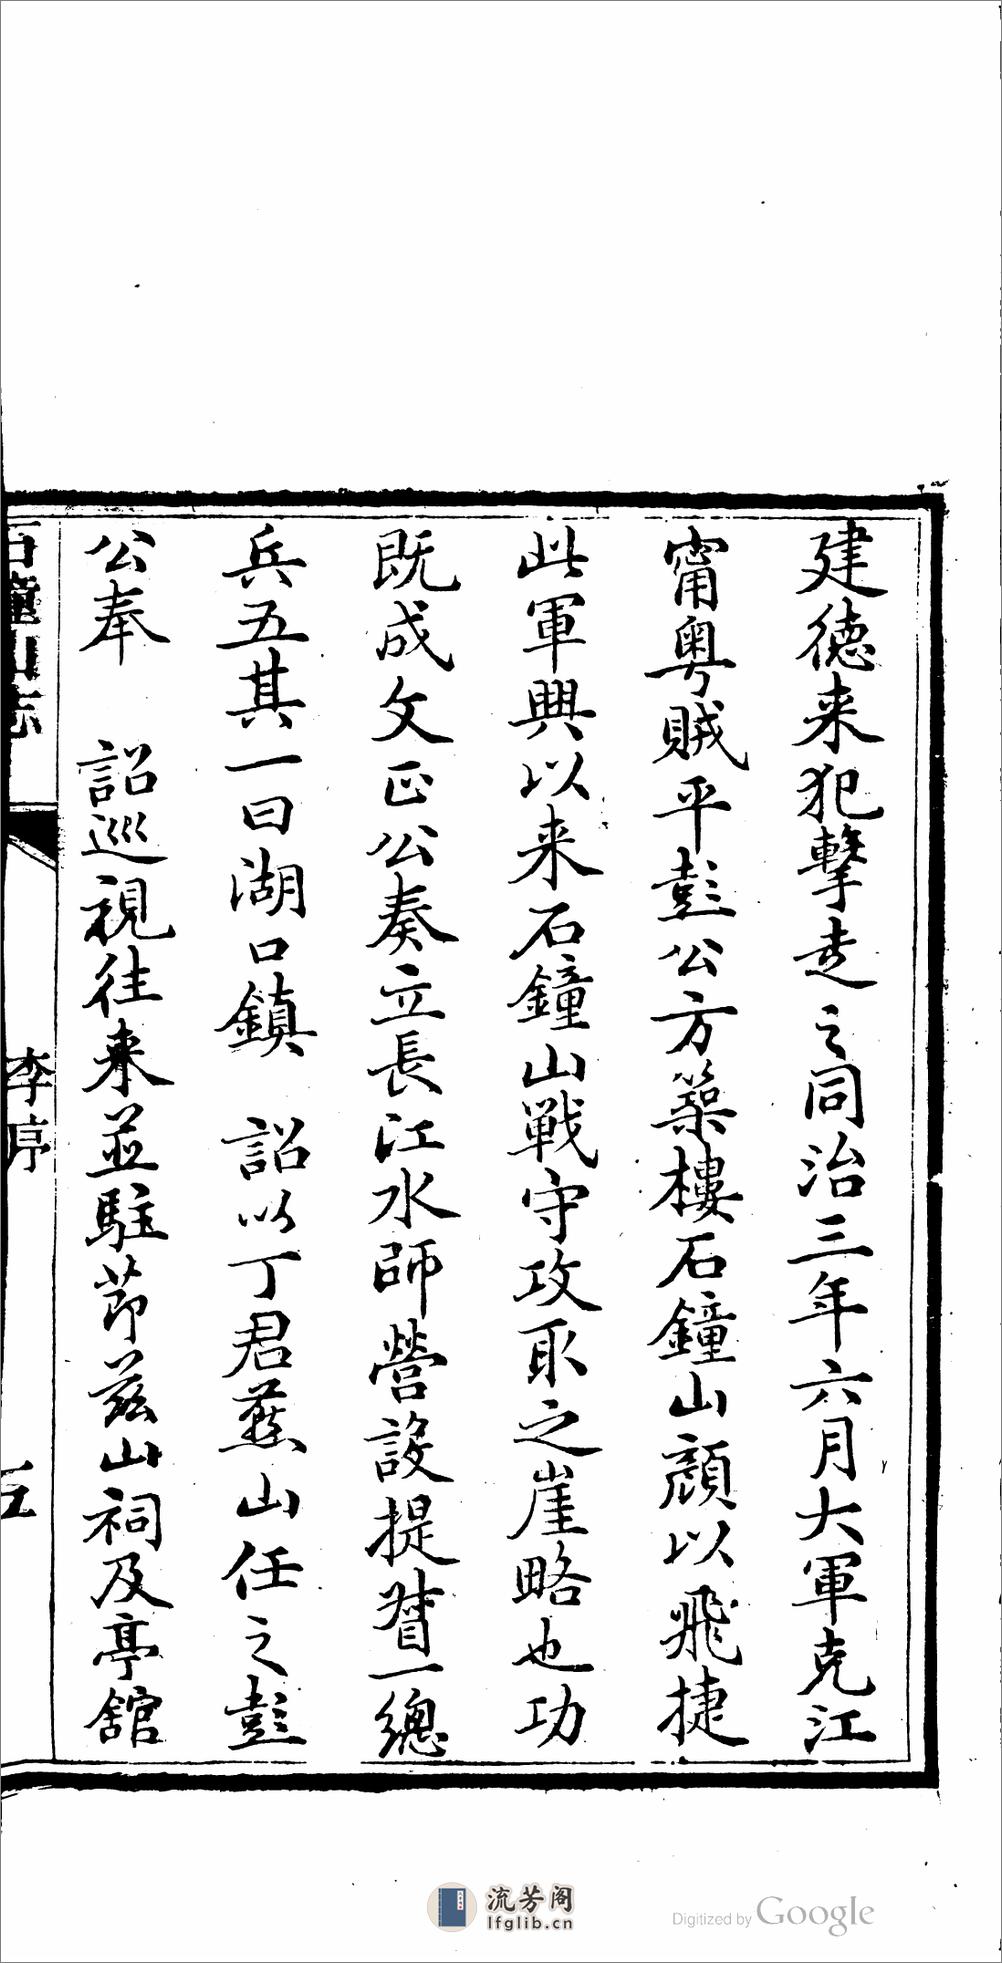 建德来犯擊走之同治三年六月大軍克江
甯粤賊平彭公方築樓石鐘山顔以飛捷
此軍興以来石鐘山戰守攻取之崖略也功
既成文正公奏立長江水師營設提督一總
兵五其一曰湖口鎮　詔以丁君燕山任之彭
公奉　詔巡視往来並駐節茲山祠及亭館
石鐘山志
李序
五
流芳阁
lfglib.cn
Digitized by Google